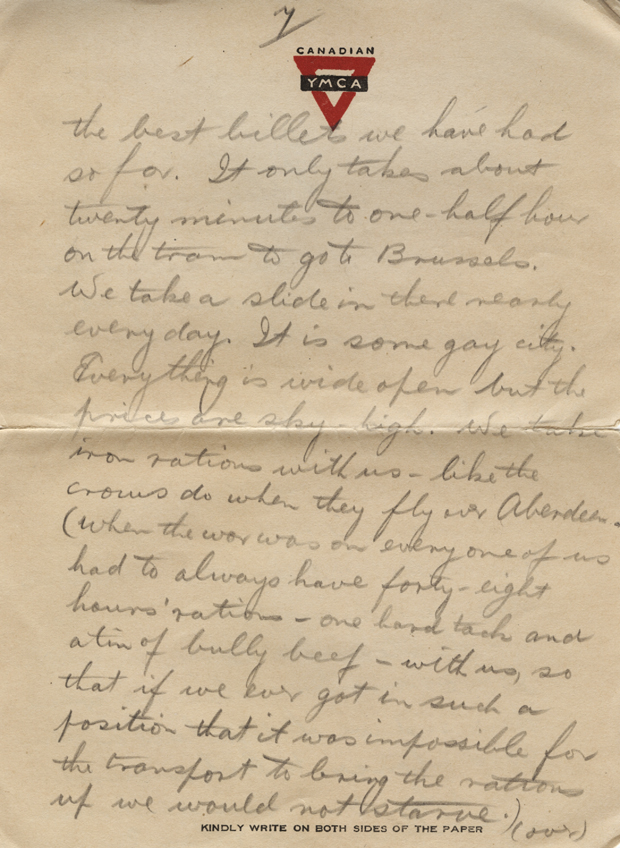 7
CANADIAN
YMCA
the best billets we have had
so far. It only takes about
twenty minutes to one-half hour
on the tram to go to Brussels.
We take a slide in there nearly
every day. It is some gay city.
Everything is wide open but the
prices are sky-high. We take
iron rations with us - like the
crows do when they fly over Aberdeen.
(When the war was on every one of us
had to always have forty-eight
hours' rations - one hard tack and
a tin of bully beef - with us, so
that if we ever got in such a
position that it was impossible for
the transport to bring the rations
up we would not starve.)
(over)
KINDLY WRITE ON BOTH SIDES OF THE PAPER